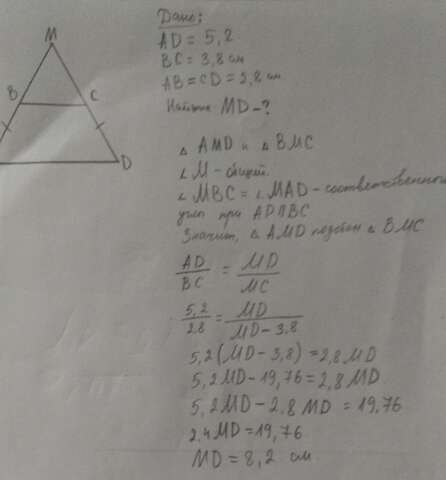 M
Дано:
AD = 5,2
BC = 3,8 см
B C
AB = CD = 2,8 см
Найти MD - ?
D
Δ AMD и Δ BMC
∠ M - общий.
∠ MBC = ∠ MAD - соответственной
углы при AD || BC
Значит, Δ AMD подобен Δ BMC
AD/BC = MD/MC
5,2/2,8 = MD/MD - 3,8
5,2(MD - 3,8) = 2,8 MD
5,2 MD - 19,76 = 2,8 MD
5,2 MD - 2,8 MD = 19,76
2,4 MD = 19,76
MD = 8,2 см